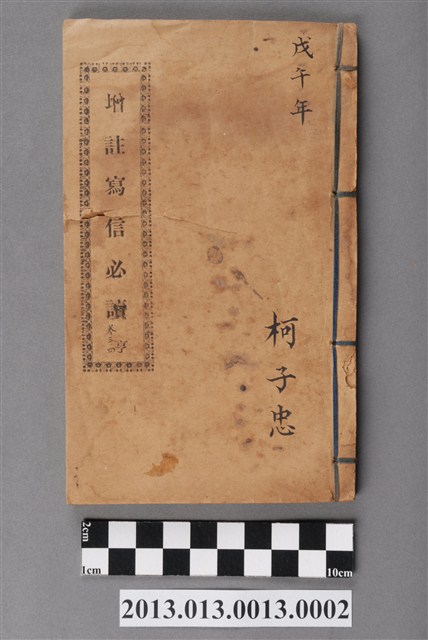 戊午年
柯子忠
增註寫信必讀
卷三四
亨
2cm
1cm
10cm
2013.013.0013.0002